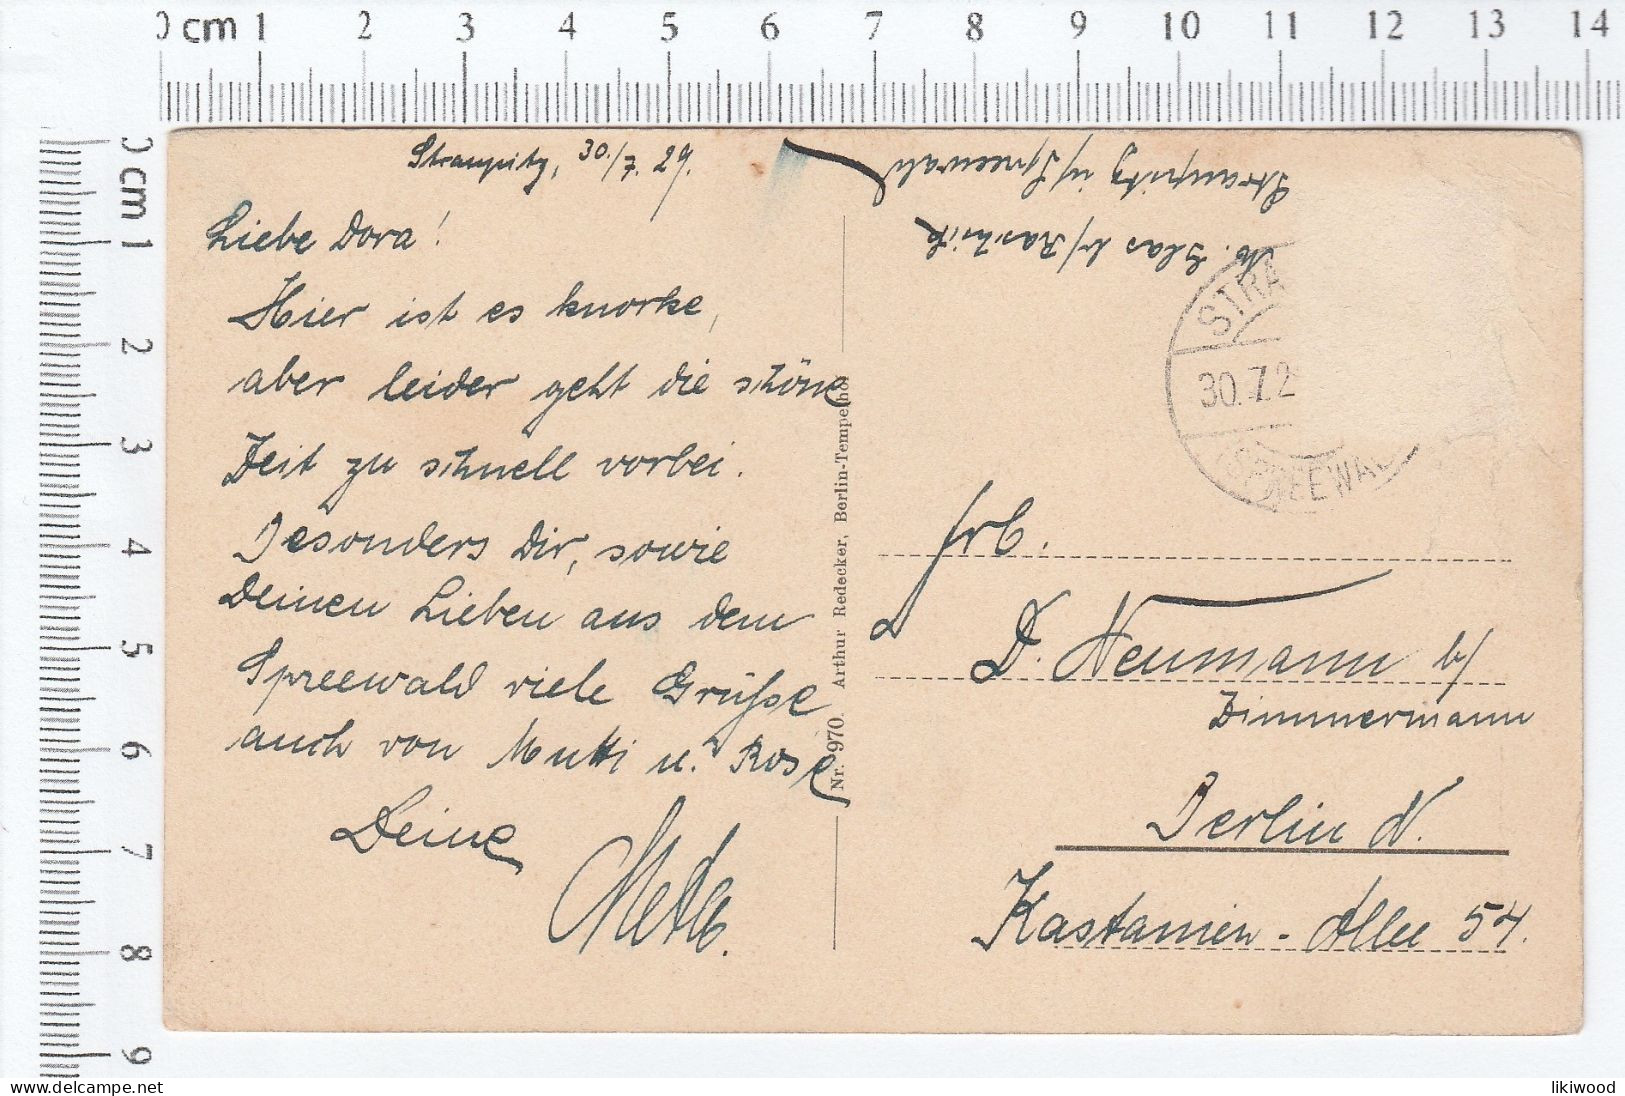 0 cm 1 2 3 4 5 6 7 8 9 10 11 12 13 14
0 cm 1 2 3 4 5 6 7 8 9
Straupitz, 30./7. 29.
Liebe Dora!
Hier ist es knorke,
aber leider geht die schöne
Zeit zu schnell vorbei.
Besonders Dir, sowie
Deinen Lieben aus dem
Spreewald viele Grüße
auch von Mutti u. Rose
Deine
Meta.
Nr. 970. Arthur Redecker, Berlin-Tempelhof
M. Glas b/
Straupitz i/Spreewald
STRA
30.7.2
SPREEWAL
Frl.
D. Neumann b/
Zimmermann
Berlin N.
Kastanien-Allee 54.
likiwood
www.delcampe.net